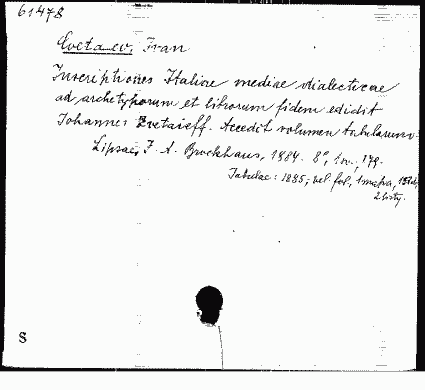 61478
Cvetaev, Ivan
Inscriptiones Italiae mediae dialecticae
ad archetyporum et librorum fidem edidit
Johannes Zvetaieff. Accedit volumen tabularum.
Lipsiae, F. A. Brockhaus, 1884. 8°, 1 ov., 179.
Tabulae: 1885, vel. fol., 1 mapa,
2 listy.
S